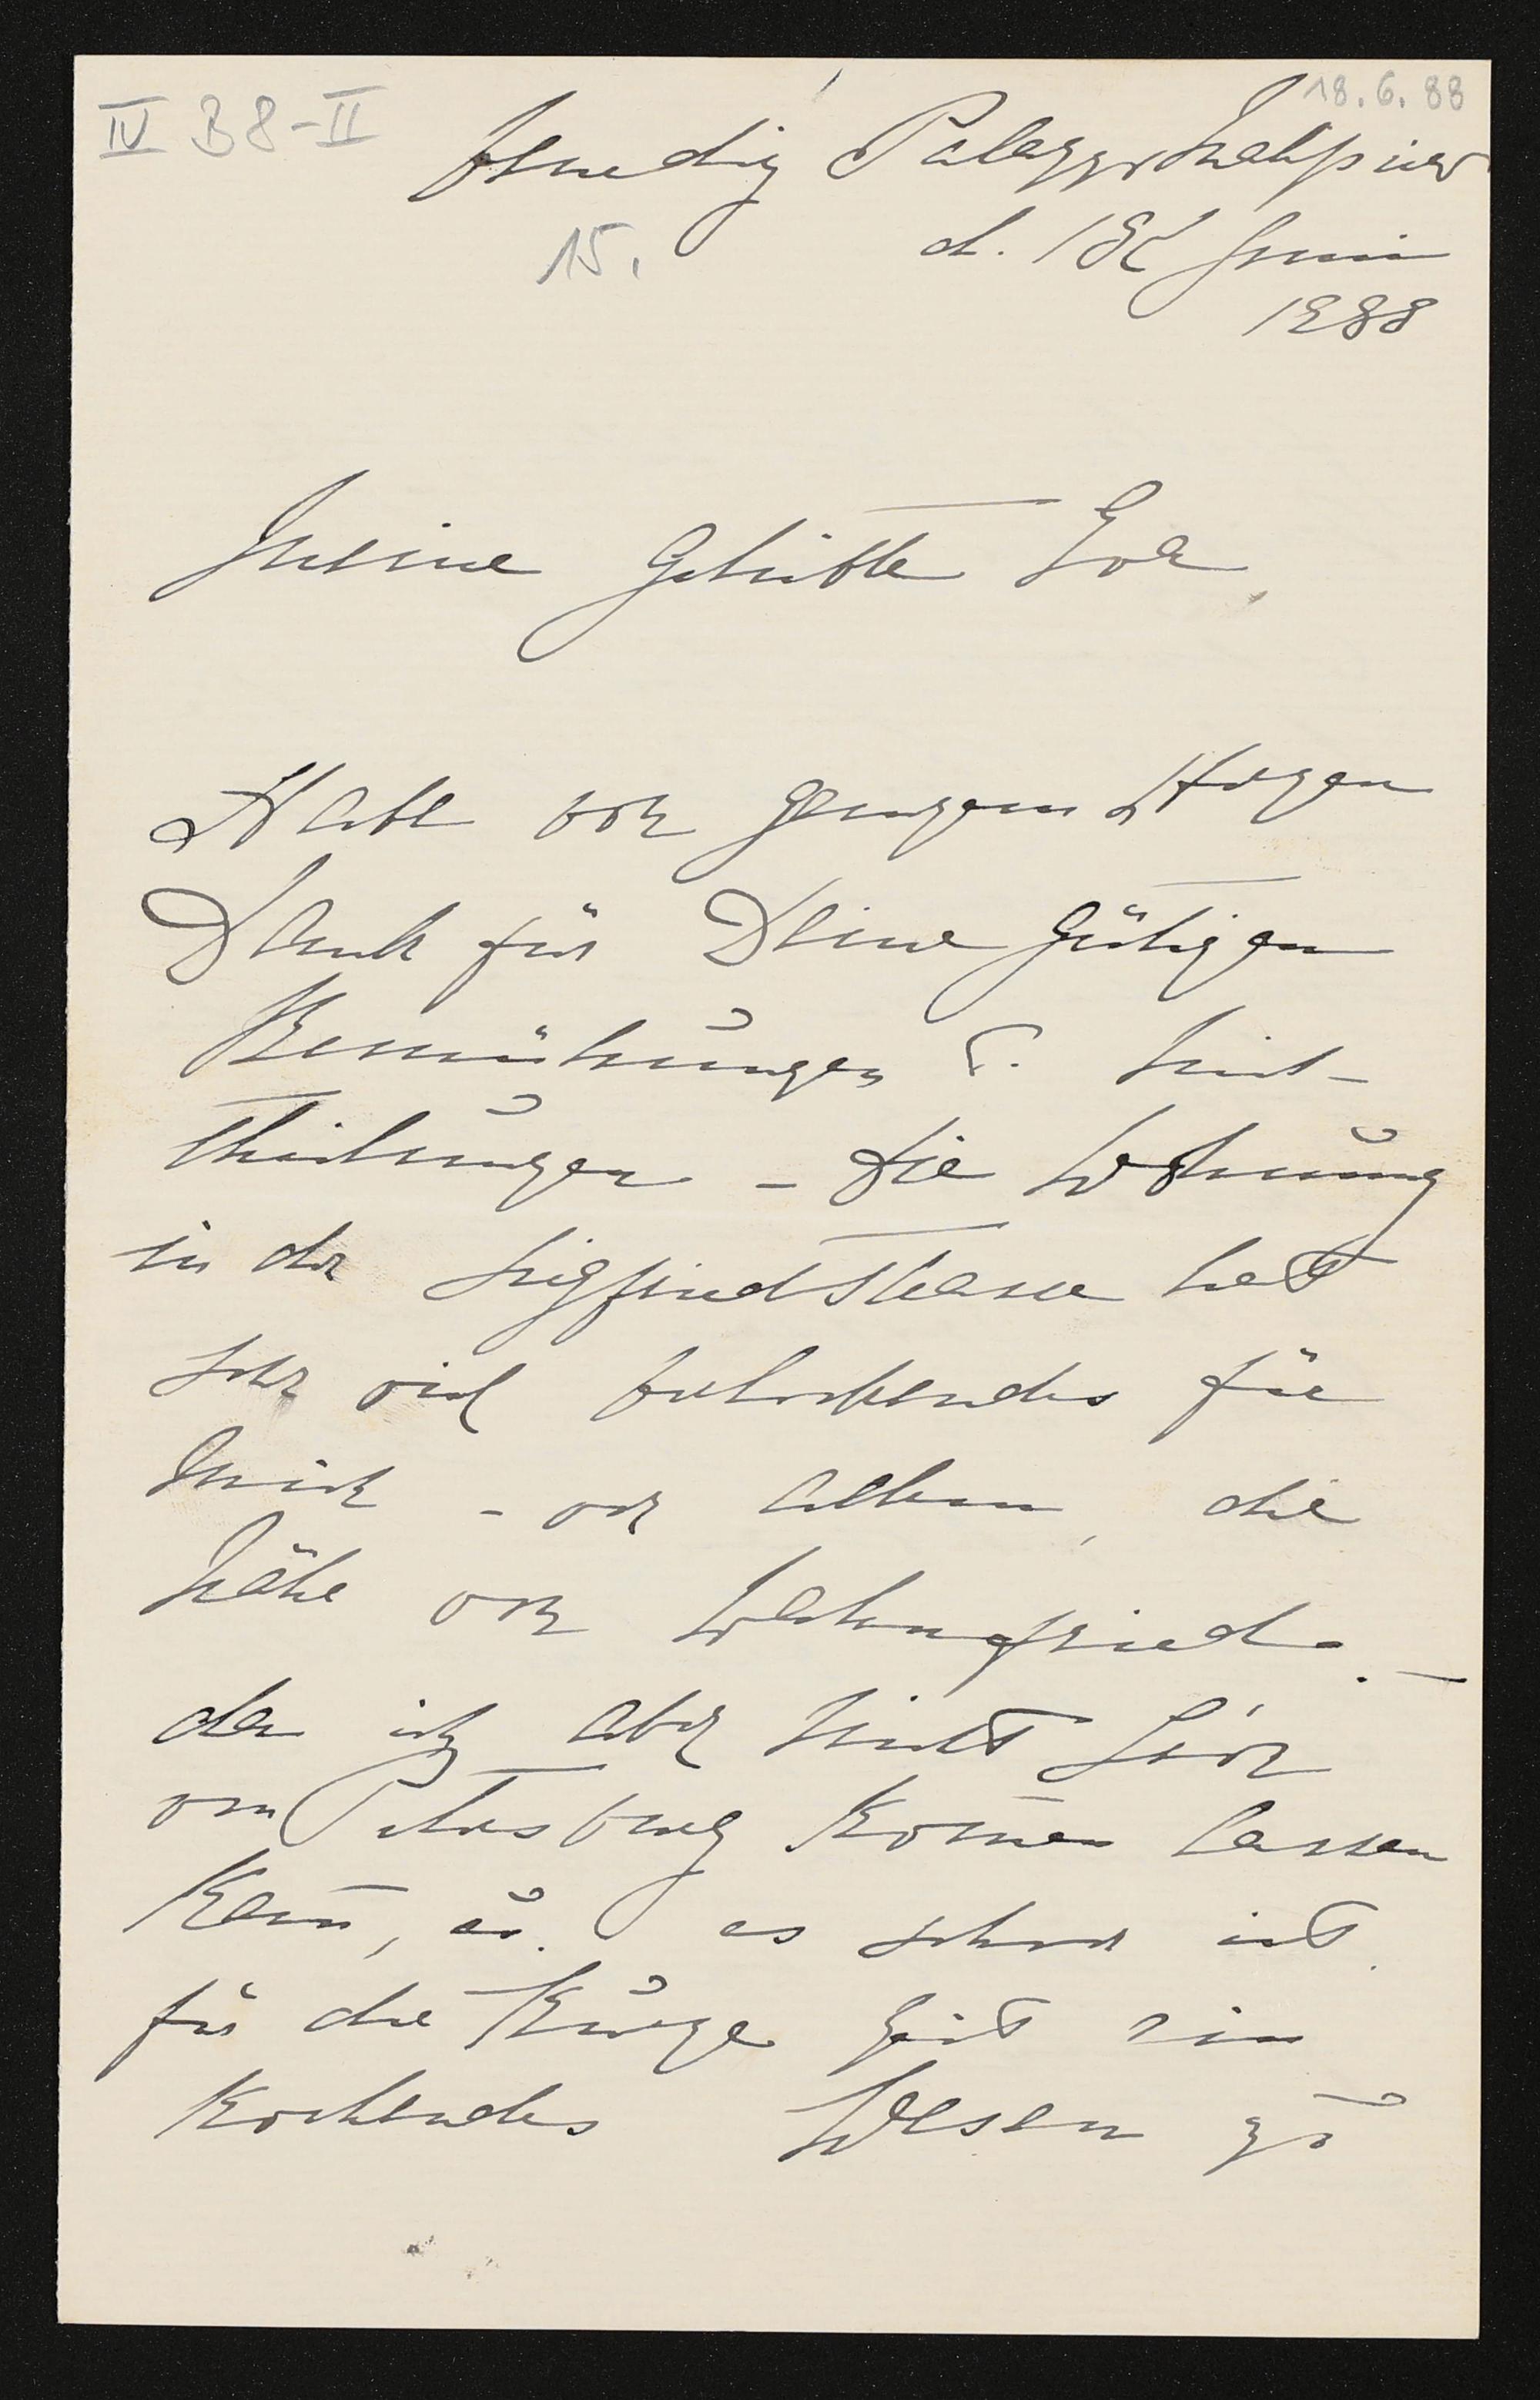 IV B 8-II
18.6.88
Venedig Palazzo Malipiero
15.
d. 18t Juni
1888
Meine Geliebte
Habe von ganzem Herzen
Dank für Deine gütigen
Bemühungen u. Mit-
theilungen – die Wohnung
in der Sigfriedstrasse hat
sehr viel verlockendes für
mich – vor allem, die
Nähe von Wahnfried. –
da ich aber nicht
von Petersburg kom̄en lassen
kan̄, u. es schwer ist
für die kurze Zeit ein
kochendes Wesen zu